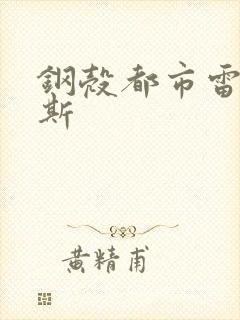 鋼殼都市雷
斯
黄精甫